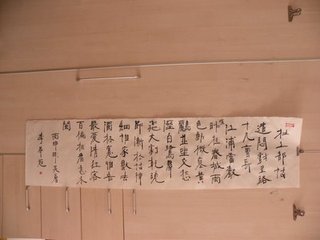 杜工部詩
遣悶戲呈路
十九曹長
江浦雷聲
喧昨夜春城雨
色動微寒黃
鸝並坐交愁
溼白鷺群
飛太劇乾晚
節漸於詩律
細誰家數去
酒杯寬惟吾
最愛清狂客
百遍相看意未
闌
丙申
李